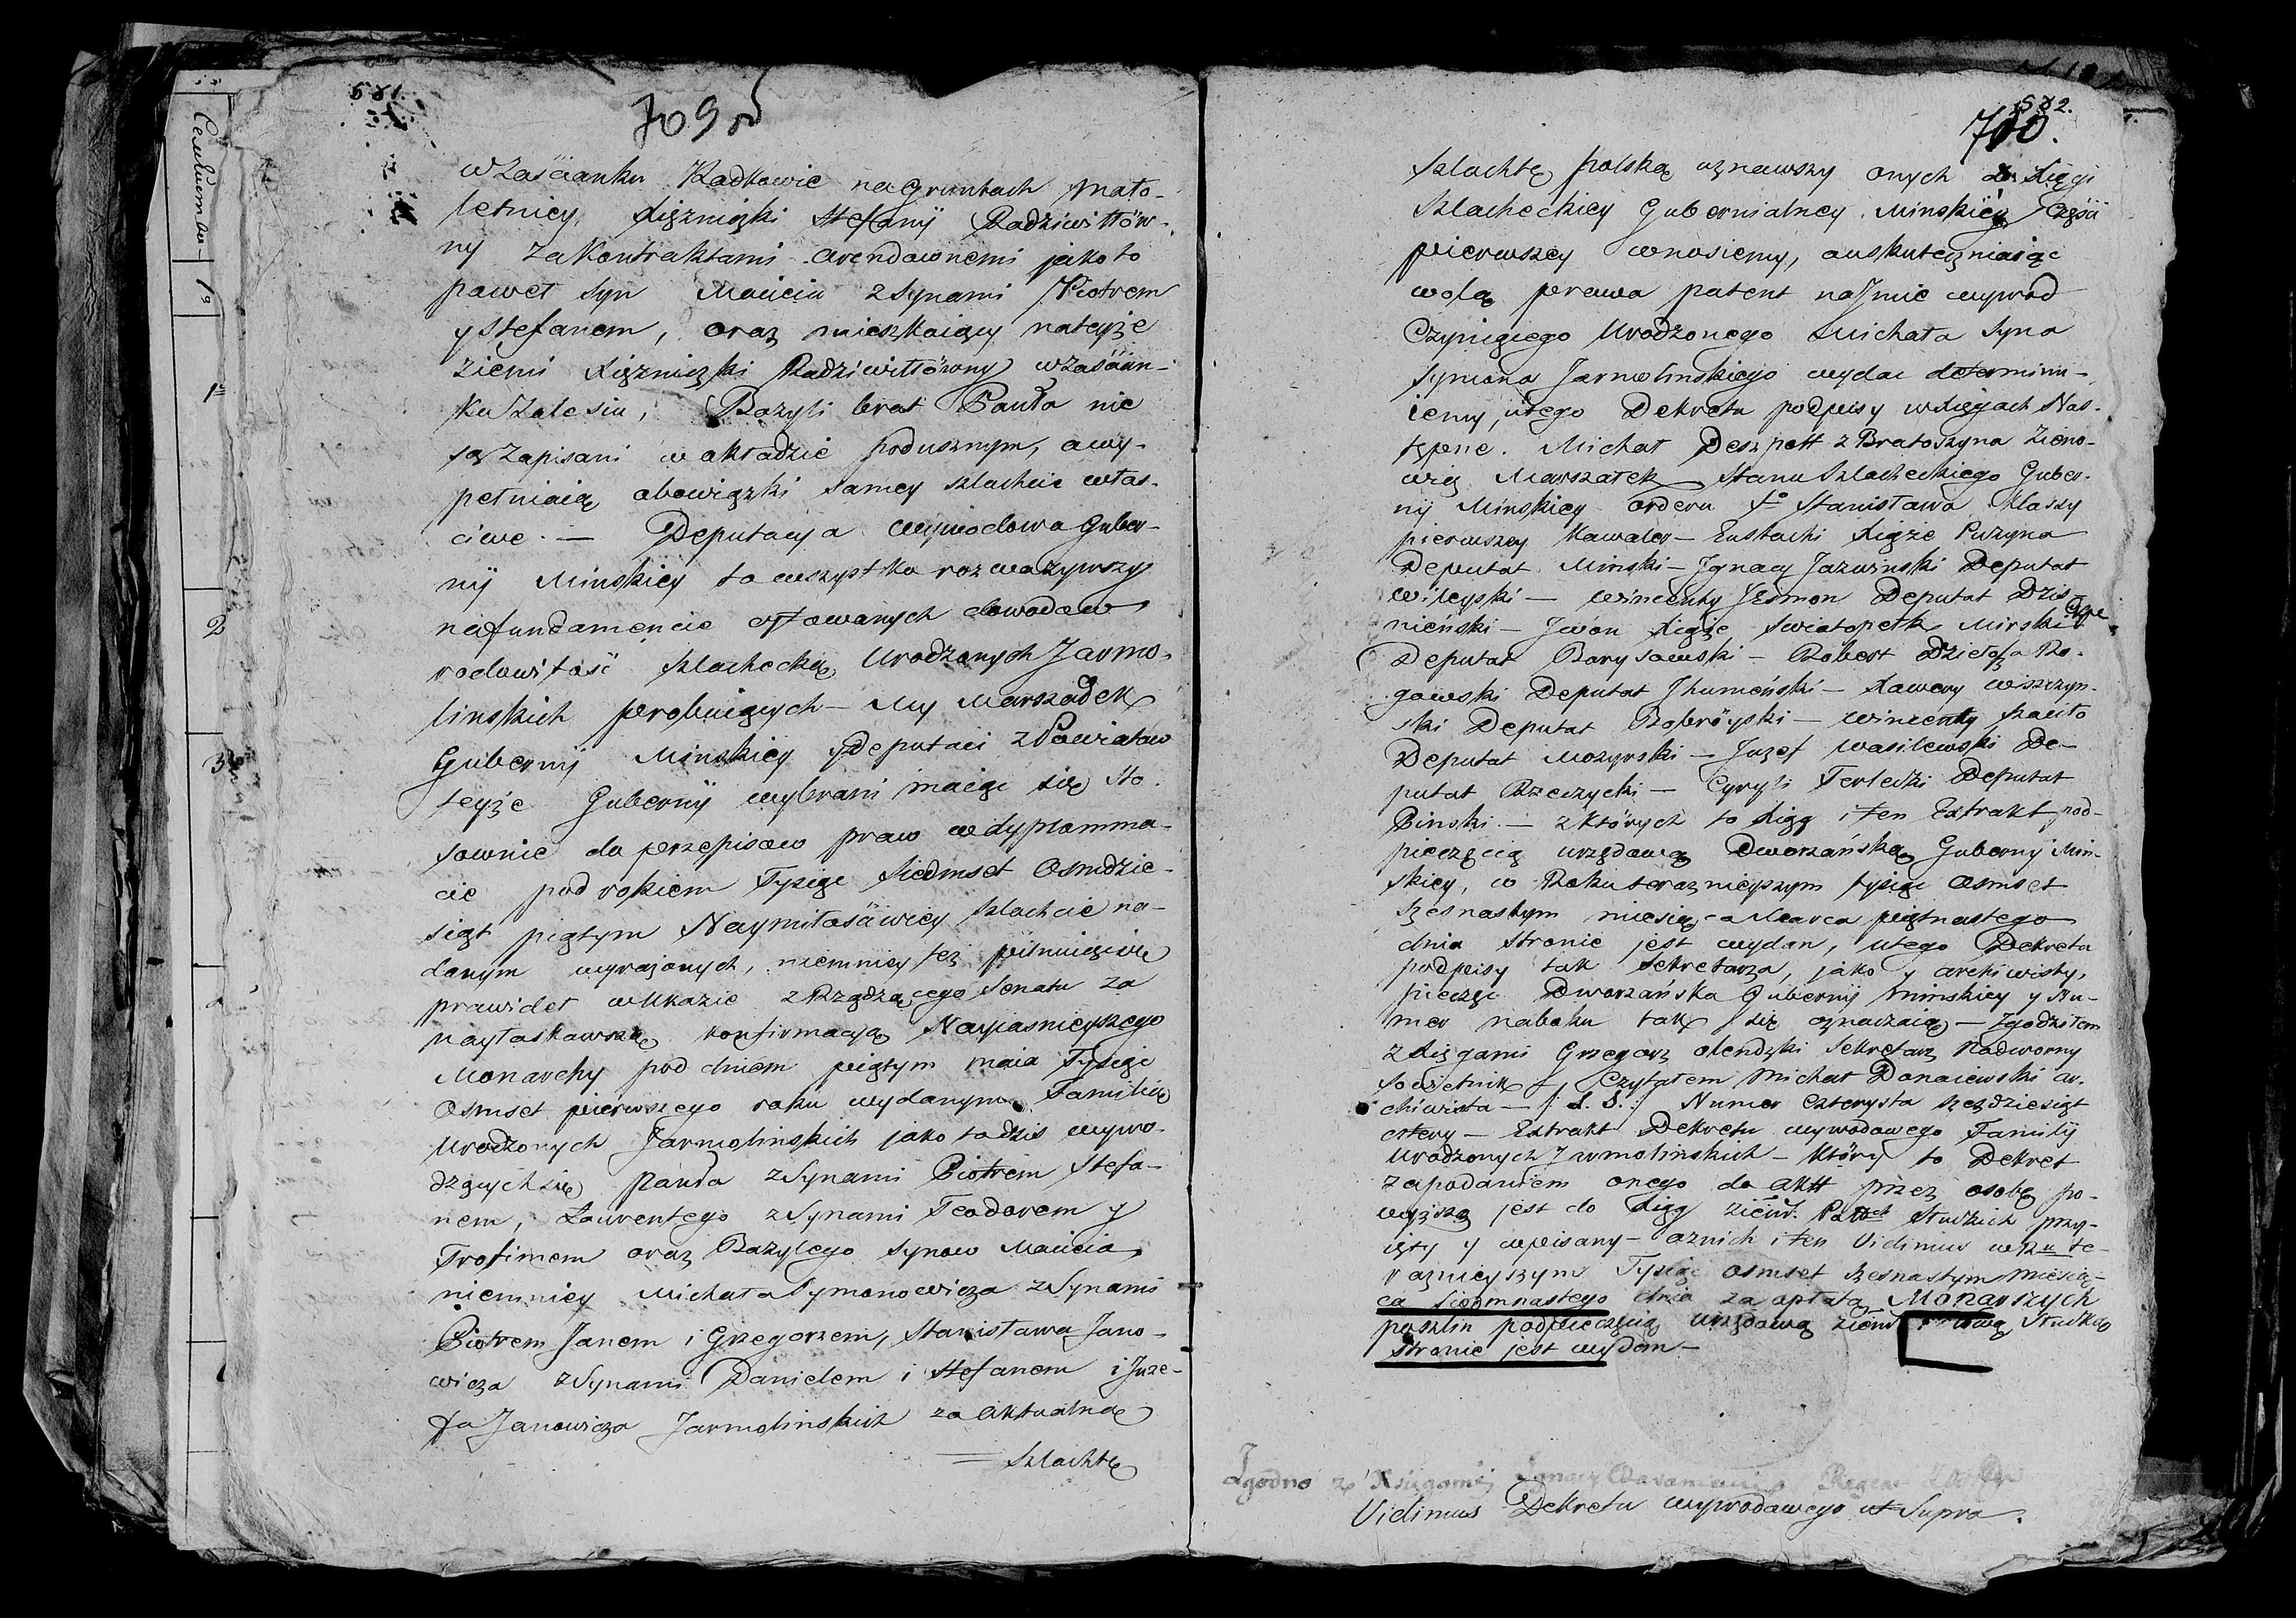 581.
709 об
w Zaścianku Radkowie na Gruntach mało-
letniey Xiężniczki Stefanij Radziwiłłów-
ny za Kontraktami arendownemi jako to
paweł syn Macieia z Synami Piotrem
y Stefanem, oraz mieszkaiący na teyże
ziemi Xiężniczki Radziwiłłówny w Zaścian-
ku Zalesiu, Bazyli brat Pawła nie
są zapisani w okładzie podusznym, a wy-
pełniaią obowiązki samey szlachcie właś-
ciwe. — Deputacya wywodowa Guber-
nij Minskiey to wszystko rozważywszy
na fundamencie cytowanych dowodow
rodowitość szlachecką Urodzonych Jarmo-
linskich probuiących — My Marszałek
Gubernij Minskiey y Deputaci z Powiatow
teyże Gubernij wybrani maiąc się sto-
sownie do przepisow praw w dyplomma-
cie pod rokiem Tysiąc Siedmset Osmdzie-
siąt piątym Naymiłościwiey szlachcie na-
danym wyrażonych, niemniey też pilnuiąc się
prawideł w Ukazie z Rządzącego Senatu za
nayłaskawszą konfirmacyą Nayiasnieyszego
Monarchy pod dniem piątym maia Tysiąc
Osmset pierwszego roku wydanym Familię
Urodzonych Jarmolinskich jako to dziś wywo-
dzących się Pawła z Synami Piotrem Stefa-
nem, Laurentego z Synami Teodorem y
Trofimem oraz Bazylego synow Macieia,
niemniey Michała Symonowicza z Synami
Piotrem Janem i Grzegorzem, Stanisława Jano-
wicza z Synami Danielem i Stefanem i Juze-
fa Janowicza Jarmolinskich za aktualną
— Szlachtę
582.
710.
Szlachtę polską uznawszy onych do Xięgi
Szlacheckiey Gubernialney Minskiey Części
pierwszey wnosiemy, a uskuteczniaiąc
wolą prawa patent na Jmie wywod
Czyniącego Urodzonego Michała Syna
Symona Jarmolinskiego wydać determinu-
iemy, u tego Dekretu podpisy w Xięgach Nas-
tępne. Michał Deszpott z Bratoszyna Zieno-
wicz Marszałek Stanu Szlacheckiego Guber-
nij Minskiey orderu So Stanisława Klassy
pierwszey Kawaler — Eustachi Xiąże Puzyna
Deputat Minski — Jgnacy Jazwinski Deputat
Wileyski — Wincenty Jesmon Deputat Dzis-
nieński — Jwon Xiąże Swiatopełk Mirski
Deputat Borysowski — Robert Ro-
gowski Deputat Jhumeński — Xawery Wiszczyn-
ski Deputat Bobröyski — Wincenty
Deputat Mozyrski — Juzef Wasilewski De-
putat Rzeczycki — Cyryli Terlecki Deputat
Pinski. — z których to Xiąg i ten Extrakt pod-
pieczęcią urzędową Dworzańską Gubernij Min-
skiey, w Roku teraznieyszym tysiąc Osmset
szesnastym miesiąca Marca piętnastego
dnia stronie jest wydan, u tego Dekretu
podpisy tak Sekretarza, jako y archiwisty,
pieczęć Dworzańska Gubernij Minskiey y Nu-
mer naboku tak się oznaczaią — Zgodziłem
z Xięgami Grzegorz Olendzki Sekretarz Nadworny
Sowietnik —, Czytałem Michał Donaiewski ar-
chiwista — /: L. S. :/ Numer Czterysta szesćdziesiąt
cztery — Extrakt Dekretu wywodowego Familij
Urodzonych Jarmolinskich — Który to Dekret
za podaniem onego do akt przez osobę po-
wyższą jest do Xiąg ziem. Powch Słuckich przy-
ięty y wpisany — a z nich i ten Vidimus w Rku te-
raznieyszym Tysiąc osmset szesnastym miesią-
ca Siedmnastego dnia za opłatą Monarszych
poszlin pod pieczęcią urzędową ziem Słucką
stronie jest wydan —
Zgodno z Xięgami Jgnacy Regent
Vidimus Dekretu wywodowego ut Supra.